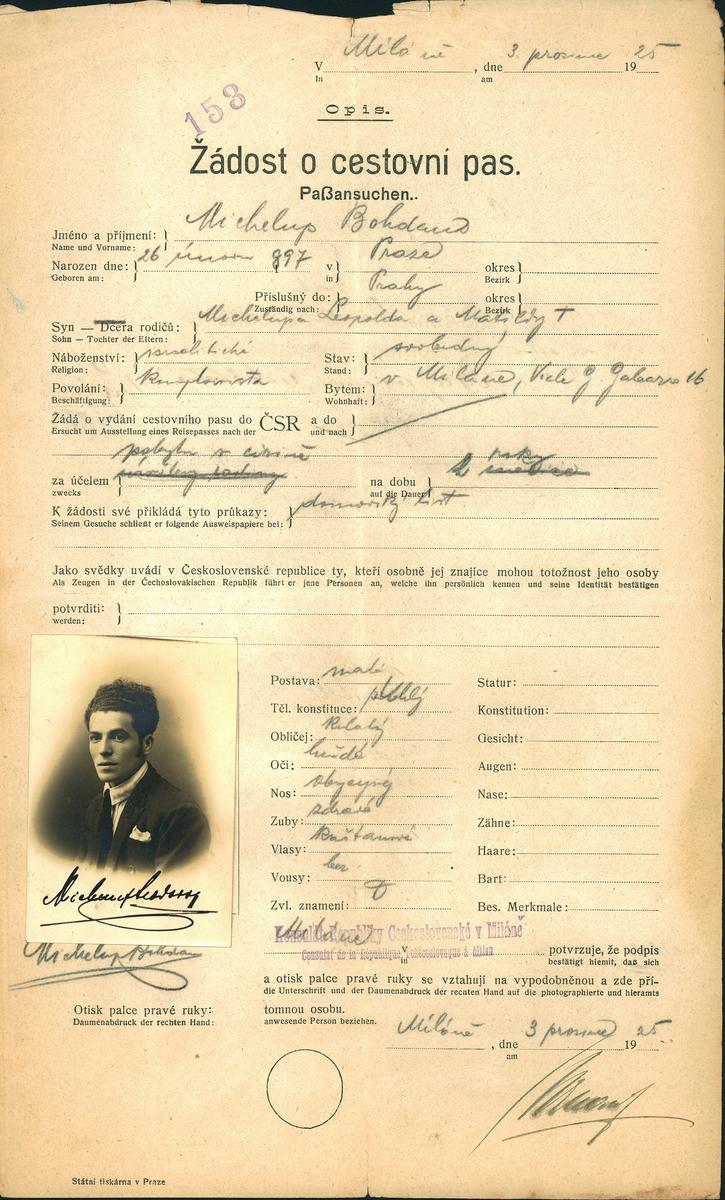 V Miláně, dne 3. prosince 1925
In am
153
Opis.
Žádost o cestovní pas.
Paßansuchen..
Jméno a příjmení: } Michelup Bohdan
Name und Vorname:
Narozen dne: } 26 února 897 v } Praze okres }
Geboren am: in Bezirk
Příslušný do: } Prahy okres }
Zuständig nach: Bezirk
Syn — Dcera rodičů: } Michelupa Leopolda a Matildy †
Sohn — Tochter der Eltern:
Náboženství: } israelitické Stav: } svobodný
Religion: Stand:
Povolání: } Bytem: } v Miláně, Viale G. 16
Beschäftigung: Wohnhaft:
Žádá o vydání cestovního pasu do ČSR a do }
Ersucht um Ausstellung eines Reisepasses nach der und nach
pobytu v cizině roky
za účelem } návštěvy rodiny na dobu } 2 měsíce
zwecks auf die Dauer
K žádosti své přikládá tyto průkazy: } domovský list
Seinem Gesuche schließt er folgende Ausweispapiere bei:
Jako svědky uvádí v Československé republice ty, kteří osobně jej znajíce mohou totožnost jeho osoby
Als Zeugen in der Čechoslovakischen Republik führt er jene Personen an, welche ihn persönlich kennen und seine Identität bestätigen
potvrditi: }
werden:
Postava: malá Statur:
Těl. konstituce: Konstitution:
Obličej: kulatý Gesicht:
Oči: hnědé Augen:
Nos: obyčejný Nase:
Zuby: zdravé Zähne:
Vlasy: kaštanové Haare:
Vousy: bez Bart:
Zvl. znamení: Bes. Merkmale:
Michelup Bohdan
Konsulát Republiky Československé v Miláně
Consulat de la République Tchécoslovaque à Milan
v potvrzuje, že podpis
in bestätigt hiemit, daß sich
a otisk palce pravé ruky se vztahují na vypodobněnou a zde pří-
die Unterschrift und der Daumenabdruck der recaten Hand auf die photographierte und hieramts
tomnou osobu.
anwesende Person beziehen.
Otisk palce pravé ruky:
Daumenabdruck der rechten Hand:
Miláně, dne 3 prosince 1925
am
Státní tiskárna v Praze